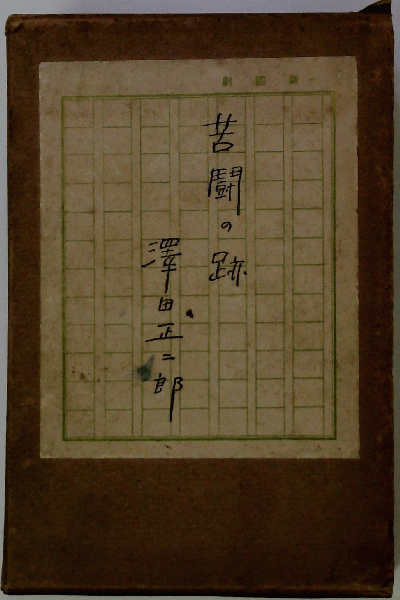 新國劇
苦鬪の跡
澤田正二郎